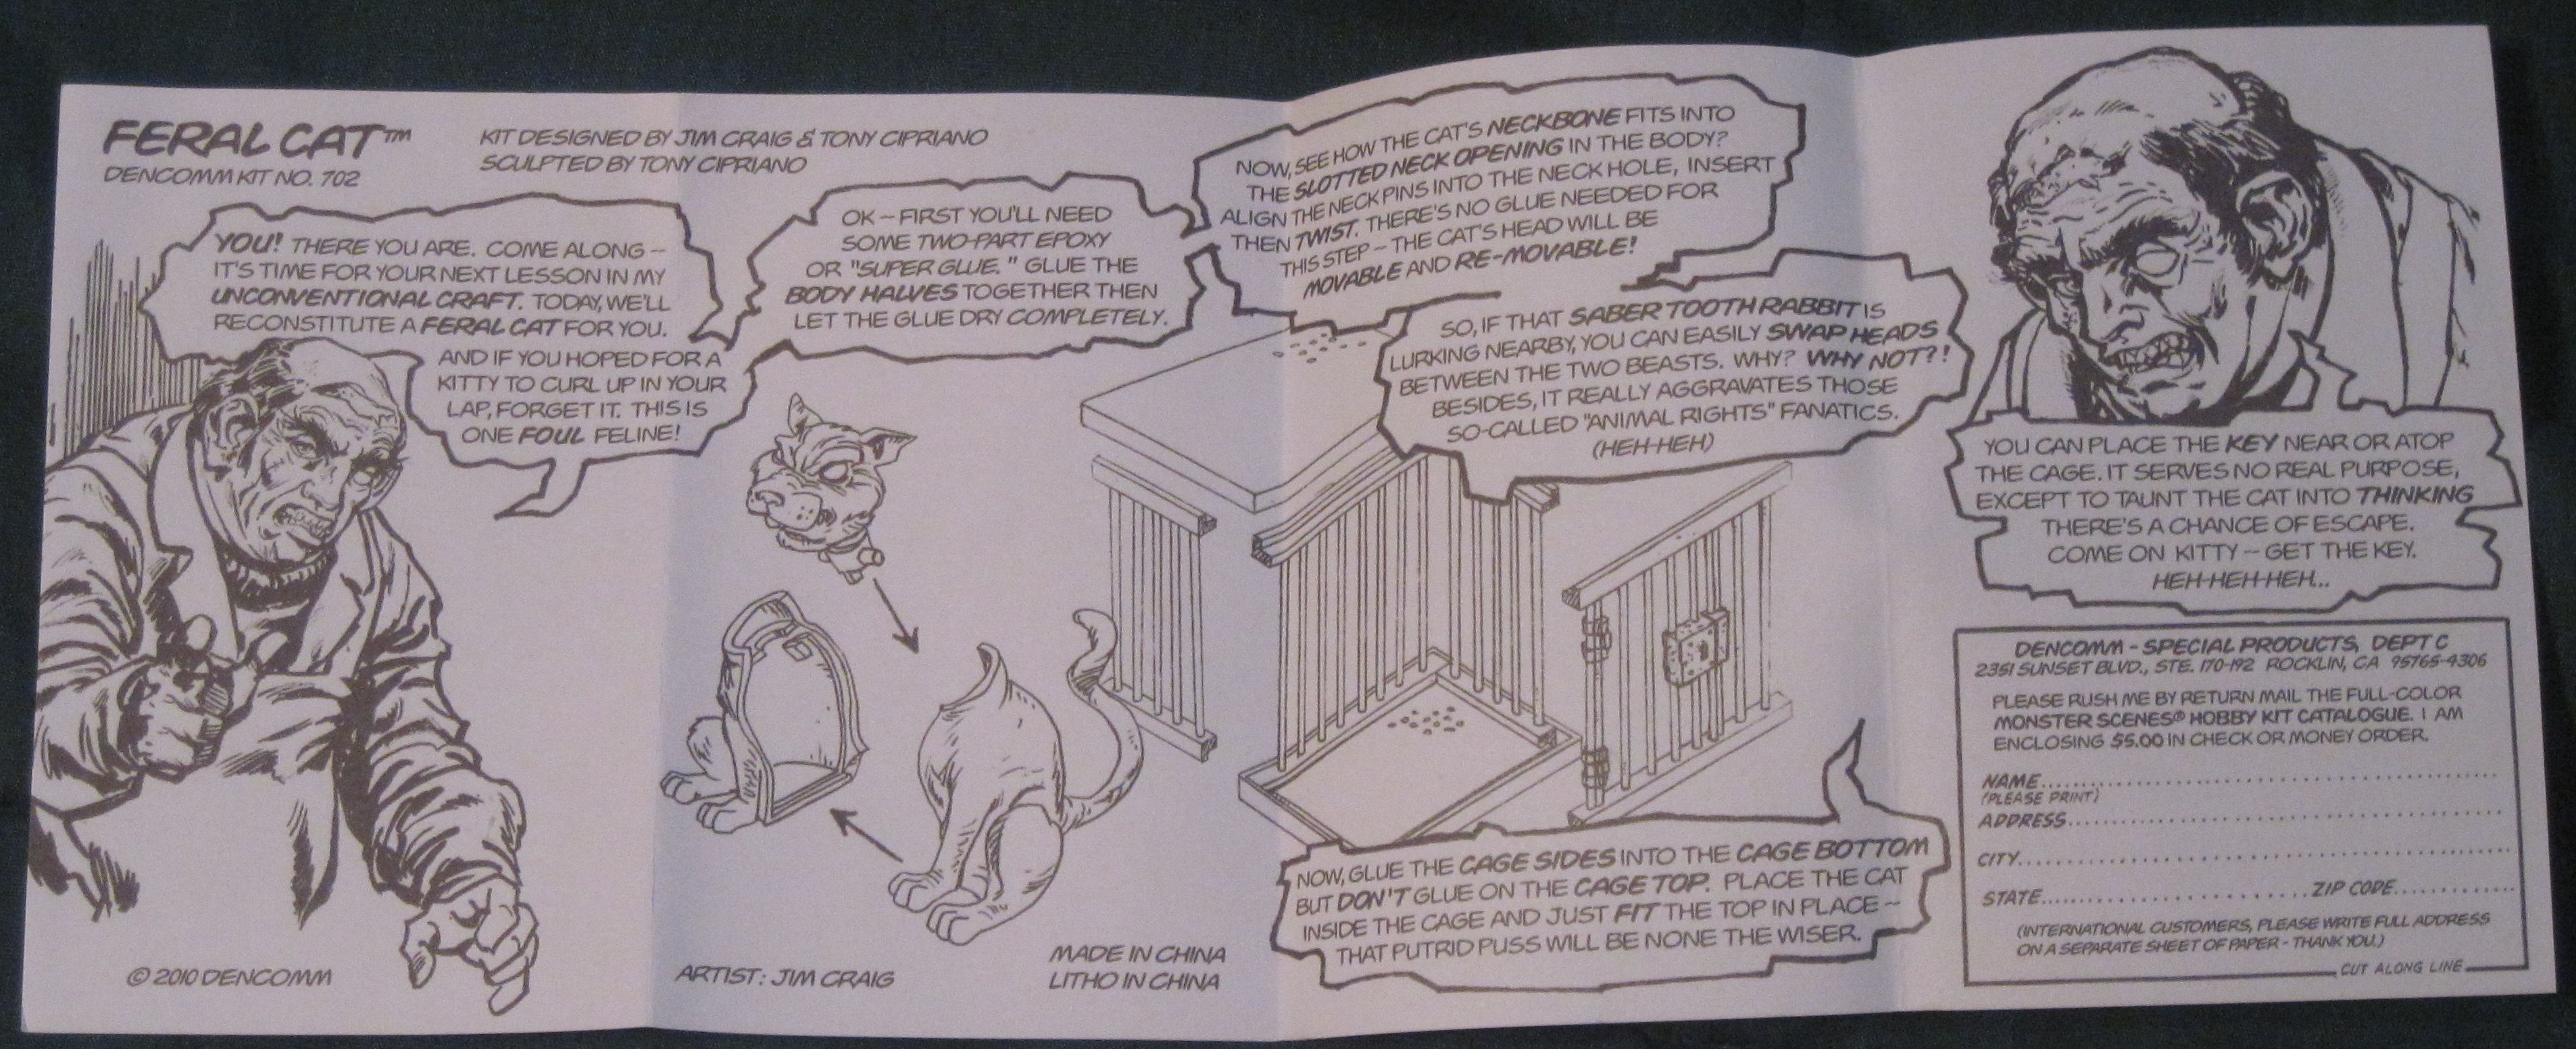 FERAL CAT™
DENCOMM KIT NO. 702
KIT DESIGNED BY JIM CRAIG & TONY CIPRIANO
SCULPTED BY TONY CIPRIANO
YOU! THERE YOU ARE. COME ALONG –
IT'S TIME FOR YOUR NEXT LESSON IN MY
UNCONVENTIONAL CRAFT. TODAY, WE'LL
RECONSTITUTE A FERAL CAT FOR YOU.
AND IF YOU HOPED FOR A
KITTY TO CURL UP IN YOUR
LAP, FORGET IT. THIS IS
ONE FOUL FELINE!
OK – FIRST YOU'LL NEED
SOME TWO-PART EPOXY
OR "SUPER GLUE." GLUE THE
BODY HALVES TOGETHER THEN
LET THE GLUE DRY COMPLETELY.
NOW, SEE HOW THE CAT'S NECKBONE FITS INTO
THE SLOTTED NECK OPENING IN THE BODY?
ALIGN THE NECK PINS INTO THE NECK HOLE, INSERT
THEN TWIST. THERE'S NO GLUE NEEDED FOR
THIS STEP – THE CAT'S HEAD WILL BE
MOVABLE AND RE-MOVABLE!
SO, IF THAT SABER TOOTH RABBIT IS
LURKING NEARBY, YOU CAN EASILY SWAP HEADS
BETWEEN THE TWO BEASTS. WHY? WHY NOT?!
BESIDES, IT REALLY AGGRAVATES THOSE
SO-CALLED "ANIMAL RIGHTS" FANATICS.
(HEH-HEH)
NOW, GLUE THE CAGE SIDES INTO THE CAGE BOTTOM
BUT DON'T GLUE ON THE CAGE TOP. PLACE THE CAT
INSIDE THE CAGE AND JUST FIT THE TOP IN PLACE –
THAT PUTRID PUSS WILL BE NONE THE WISER.
YOU CAN PLACE THE KEY NEAR OR ATOP
THE CAGE. IT SERVES NO REAL PURPOSE,
EXCEPT TO TAUNT THE CAT INTO THINKING
THERE'S A CHANCE OF ESCAPE.
COME ON KITTY – GET THE KEY.
HEH-HEH-HEH...
DENCOMM - SPECIAL PRODUCTS, DEPT C
2351 SUNSET BLVD., STE. 170-192 ROCKLIN, CA 95765-4306
PLEASE RUSH ME BY RETURN MAIL THE FULL-COLOR
MONSTER SCENES® HOBBY KIT CATALOGUE. I AM
ENCLOSING $5.00 IN CHECK OR MONEY ORDER.
NAME
(PLEASE PRINT)
ADDRESS
CITY
STATE ZIP CODE
(INTERNATIONAL CUSTOMERS, PLEASE WRITE FULL ADDRESS
ON A SEPARATE SHEET OF PAPER - THANK YOU.)
CUT ALONG LINE
© 2010 DENCOMM
ARTIST: JIM CRAIG
MADE IN CHINA
LITHO IN CHINA